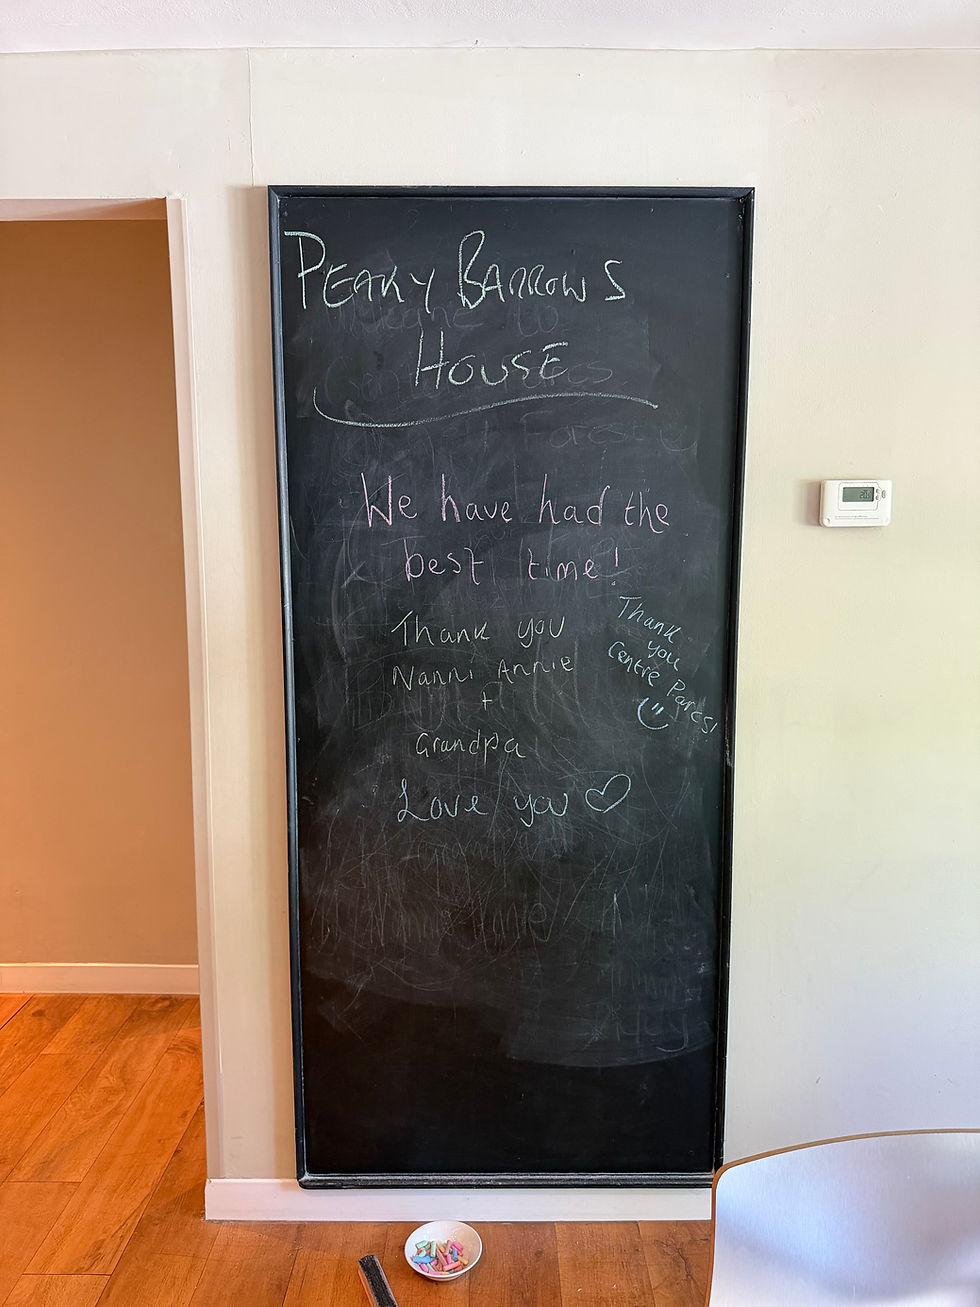 PEAKY BARROWS
HOUSE
We have had the
best time!
Thank you
Nanni Annie
+
Grandpa
Love you ♡
Thank
you
Centre Parcs!